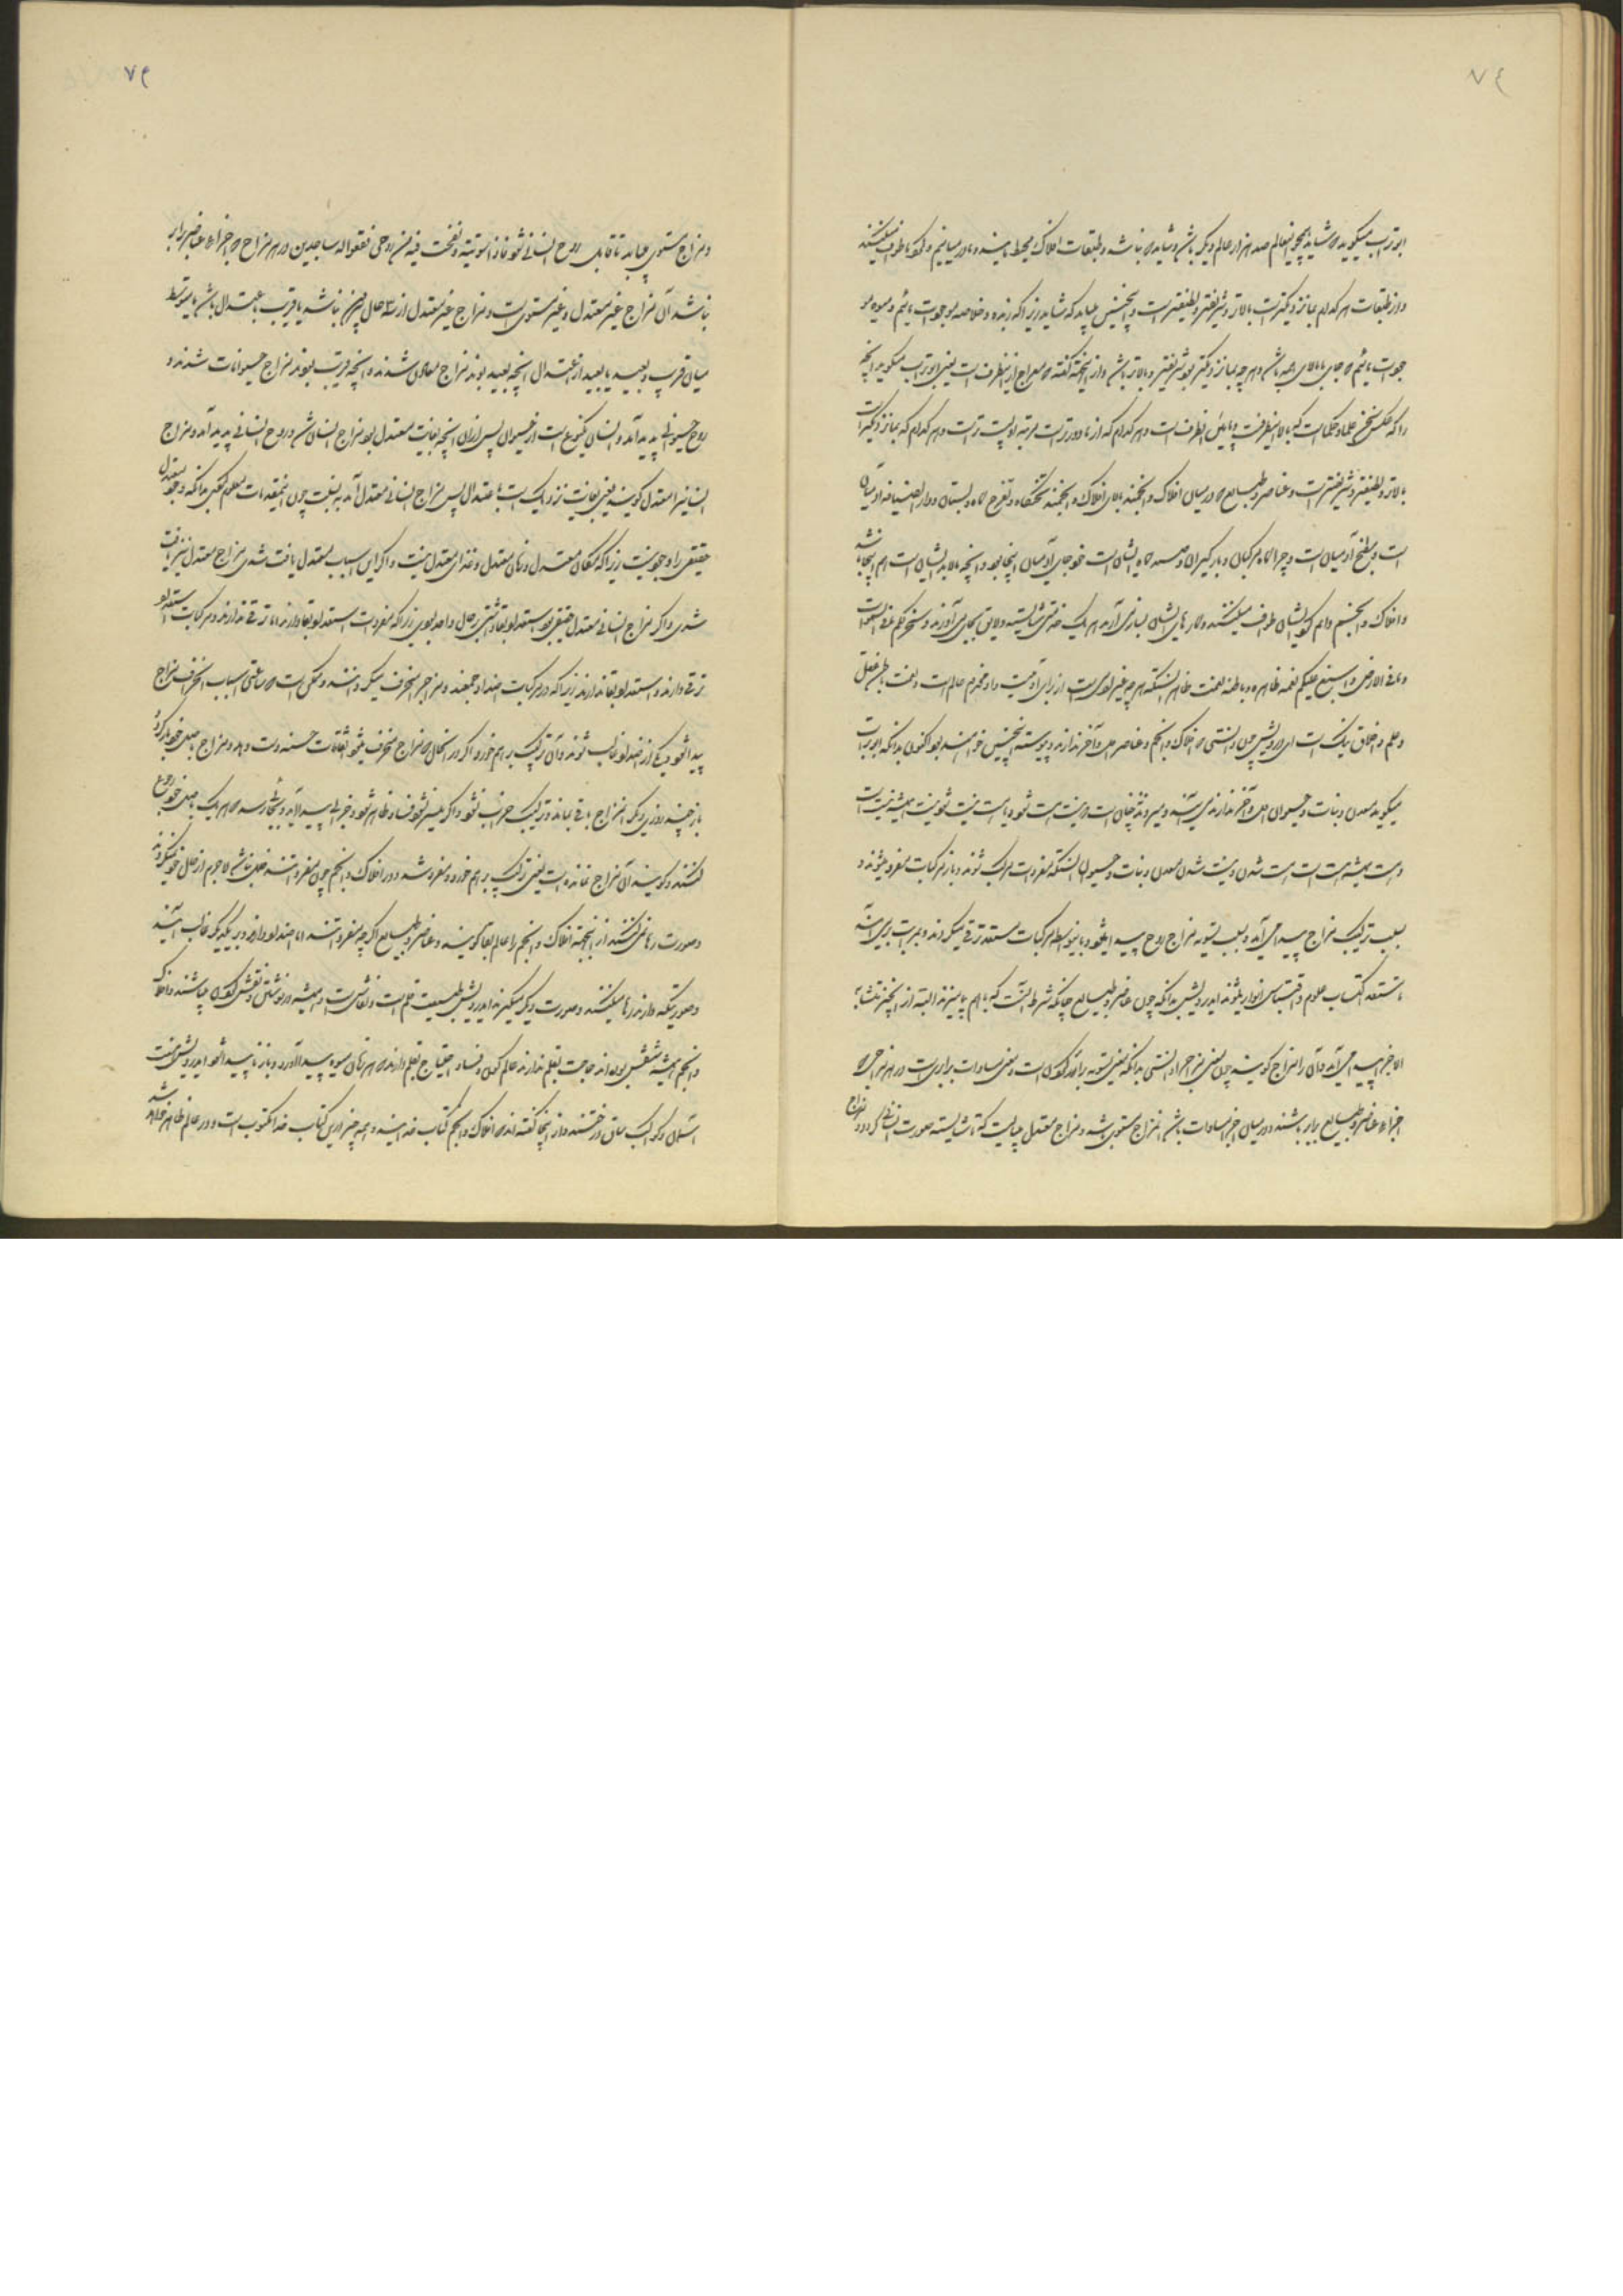 ٧٤
ابوتراب میگوید که شاید همچو اینعالم صد هزار عالم دیگر باشن و شاید که نباشد و طبقات افلاک محیط مااند و ما در میانیم و کواکب طواف میکنند
و از طبقات هر کدام بما نزدیکترست بالاتر و شریفتر و لطیفترست و اینچنین میباید که شاید زیرا که زبده و خلاصه موجودات مائیم و میوه
موجودات مائیم که جای ما بالای همه باشن و هر چه بما نزدیکتر بود شریفتر و بالاتر باشن و از اینجهت گفته که معراج ازینطرف است یعنی ابوتراب میگوید اینچه
را که عکس سخن علما و حکماست که بالا اینطرفست و پایین آنطرف است و هر کدام که از ما دورترست مرتبه او پست ترست و هر کدام که بما نزدیکتر است
بالاتر و لطیفتر و شریفتر است و عناصر و طبایع که در میان افلاک و انجمند بالای افلاک و انجمند تختگاه و تفرج گاه و بستان و دار الضیافه آدمیان
است و مطبخ آدمیان است و چراگاه مرکبان و بارگیران و صیدگاه ایشان است خود جای آدمیان اینجا بود و انچه ما لابد ایشان است هم اینجا باشد
و افلاک و انجم دایم گرد ایشان طواف میکنند و کارهای ایشان بسازی آرند هر یک خدمتی شایسته و لایق بجای می آورند و سخر لکم ما فی السموات
و ما فی الارض و اسبغ علیکم نعمه ظاهره و باطنه نعمت ظاهر اینستکه هر چه غیر آدمی است از برای آدمیست و او مخدوم عالم است و نعمت باطن عقل
و علم و اخلاق نیک است ای درویش چون دانستی که افلاک و انجم و عناصر اول و آخر ندارند و پیوسته اینچنین خواهند بود اکنون بدانکه ابوتراب
میگوید معدن و نبات و حیوان اول و آخر ندارند می آیند و میروند نه چنان است که نیست هست شود یا هست نیست شود نیست همیشه نیست است
و هست همیشه هست است هست شدن و نیست شدن معدن و نبات و حیوان اینستکه مفردات مرکب شوند و باز مرکبات مفرد میشوند و
بسبب ترکیب مزاج پیدا می آید و بسبب تسویه مزاج روح پیدا میشود و باینواسطه مرکبات مستعد ترقی میگردند و بمراتب برمی آیند
تا مستعد اکتساب علوم و اقتباس انوار میشوند ایدرویش بدانکه چون عناصر و طبایع چنانکه شرط آنست که با هم بیامیزند البته از آنجیز متشابه
الاجزا پیدا می آید و آن را مزاج گویند چون معنی مزاج را دانستی بدانکه معنی تسویه برابر کردن است و معنی مساوات برابریست در هر مزاجی که
اجزاء عناصر و طبایع برابر باشند و در میان اجزا مساوات باشد آن مزاج مستوی باشد و مزاج معتدل میبایست که تا شایسته صورت انسانی گردد و مزاج
٧٥
و مزاج مستوی میباید تا قابل روح انسانی شود فاذا سویته و نفخت فیه من روحی فقعوا له ساجدین در هر مزاج که اجزاء عناصر برابر
نباشد آن مزاج غیر معتدل و غیر مستوی است و مزاج غیر معتدل از سه حال بیرون نباشد یا قریب باعتدال باشن یا متوسط
میان قریب و بعید یا بعید از اعتدال انچه بعید بودند مزاج معادن شدند و انچه قریب بودند مزاج حیوانات شدند و
روح حیوانی پدید آمد و انسان یکنوع است از حیوان پس ازان انچه بغایت معتدل بود مزاج انسان شد و روح انسانی پدید آمد و مزاج
انسانرا معتدل گویند یعنی بغایت نزدیک است باعتدال پس مزاج انسانی معتدل آمد به نسبت چون اینمقدمات معلوم کنی بدانکه وجود معتدل
حقیقی را وجود نیست زیرا که مکان معتدل و زمان معتدل و غذای معتدل نیست و اگر این اسباب معتدل یافت شدی مزاج معتدل نیز یافت
شدی و اگر مزاج انسانی معتدل حقیقی بود استعداد بقا داشتی بر حال واحد بودی زیرا که مفردات استعداد بقا دارند اما ترقی ندارند و مرکبات استعداد
ترقی دارند و استعداد بقا ندارند زیرا که در مرکبات اضداد جمعند و مزاج منحرف میگردانند و ممکن است که بساعتی اسباب انحراف مزاج
پیدا شود و یکی از اضداد غالب شوند و آن ترکیب بر هم خورد و اگر در آنحال که مزاج منحرف میشود اتفاقات حسنه دست دهد و مزاج باصل خود باز گردد
باز چند روزی دیگر آن مزاج باقی بماند و ترکیب خراب نشود و اگر میسر نشود فساد ظاهر شود و خرابی پیدا آید و بجائی رسد که هر یک باصل خود رجوع
کنند و گویند آن مزاج نمانده است یعنی ترکیب بر هم خورده و مفرد شده و در افلاک و انجم چون مفردا تند ضد نباشد لاجرم از حال خود نمیگردند
و صورت رها نمی کنند از اینجهت افلاک و انجم را عالم بقا گویند و عناصر و طبایع اگر چه مفردا تند اما ضد او دارند و بر یکدیگر غالب آیند
و صورتیکه دارند رها میکنند و صورت دیگر میگیرند ایدرویش طبیعت قلم است و نقاش است و همیشه در نوشتن و نقش کردن میباشند و افلاک
و انجم همیشه منقش بوده اند حاجت بقلم ندارند عالم کون و فساد احتیاج بقلم دارند که هر زمان میوه پیدا آورد و باز ناپیدا شود ایدرویش درخت
آسمان و کواکب ساق درختند و از اینجا گفته اند که افلاک و انجم کتاب خدایند و همه چیز درین کتاب خدا مکتوب است و در عالم ظاهر خواهد شد